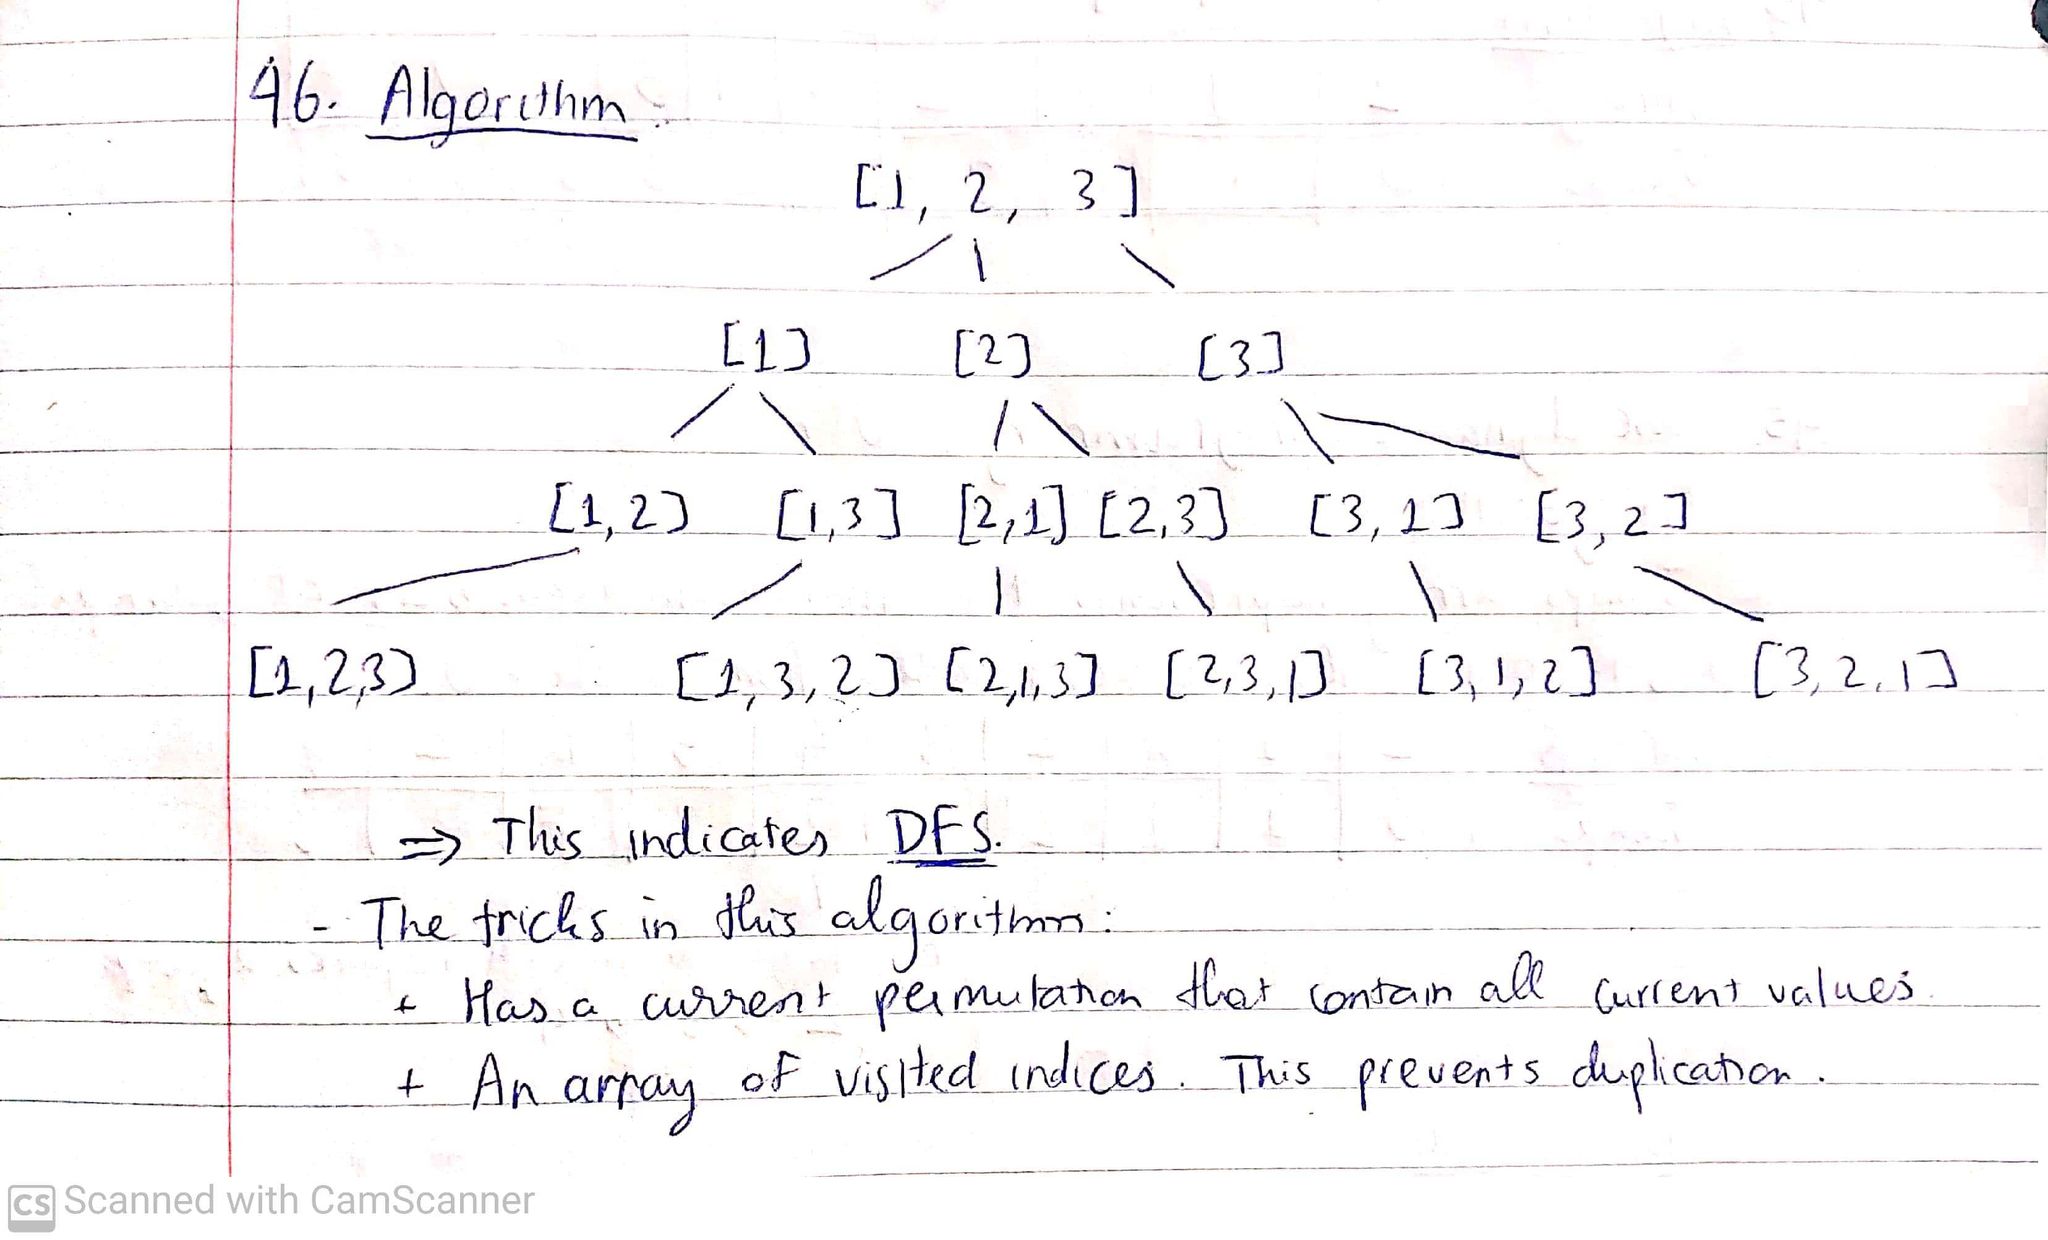 46. Algorithm:
[1, 2, 3]
[1] [2] [3]
[1,2] [1,3] [2,1] [2,3] [3,1] [3,2]
[1,2,3] [1,3,2] [2,1,3] [2,3,1] [3,1,2] [3,2,1]
⇒ This indicates DFS.
- The tricks in this algorithm:
+ Has a current permutation that contain all current values.
+ An array of visited indices. This prevents duplication.
CS Scanned with CamScanner